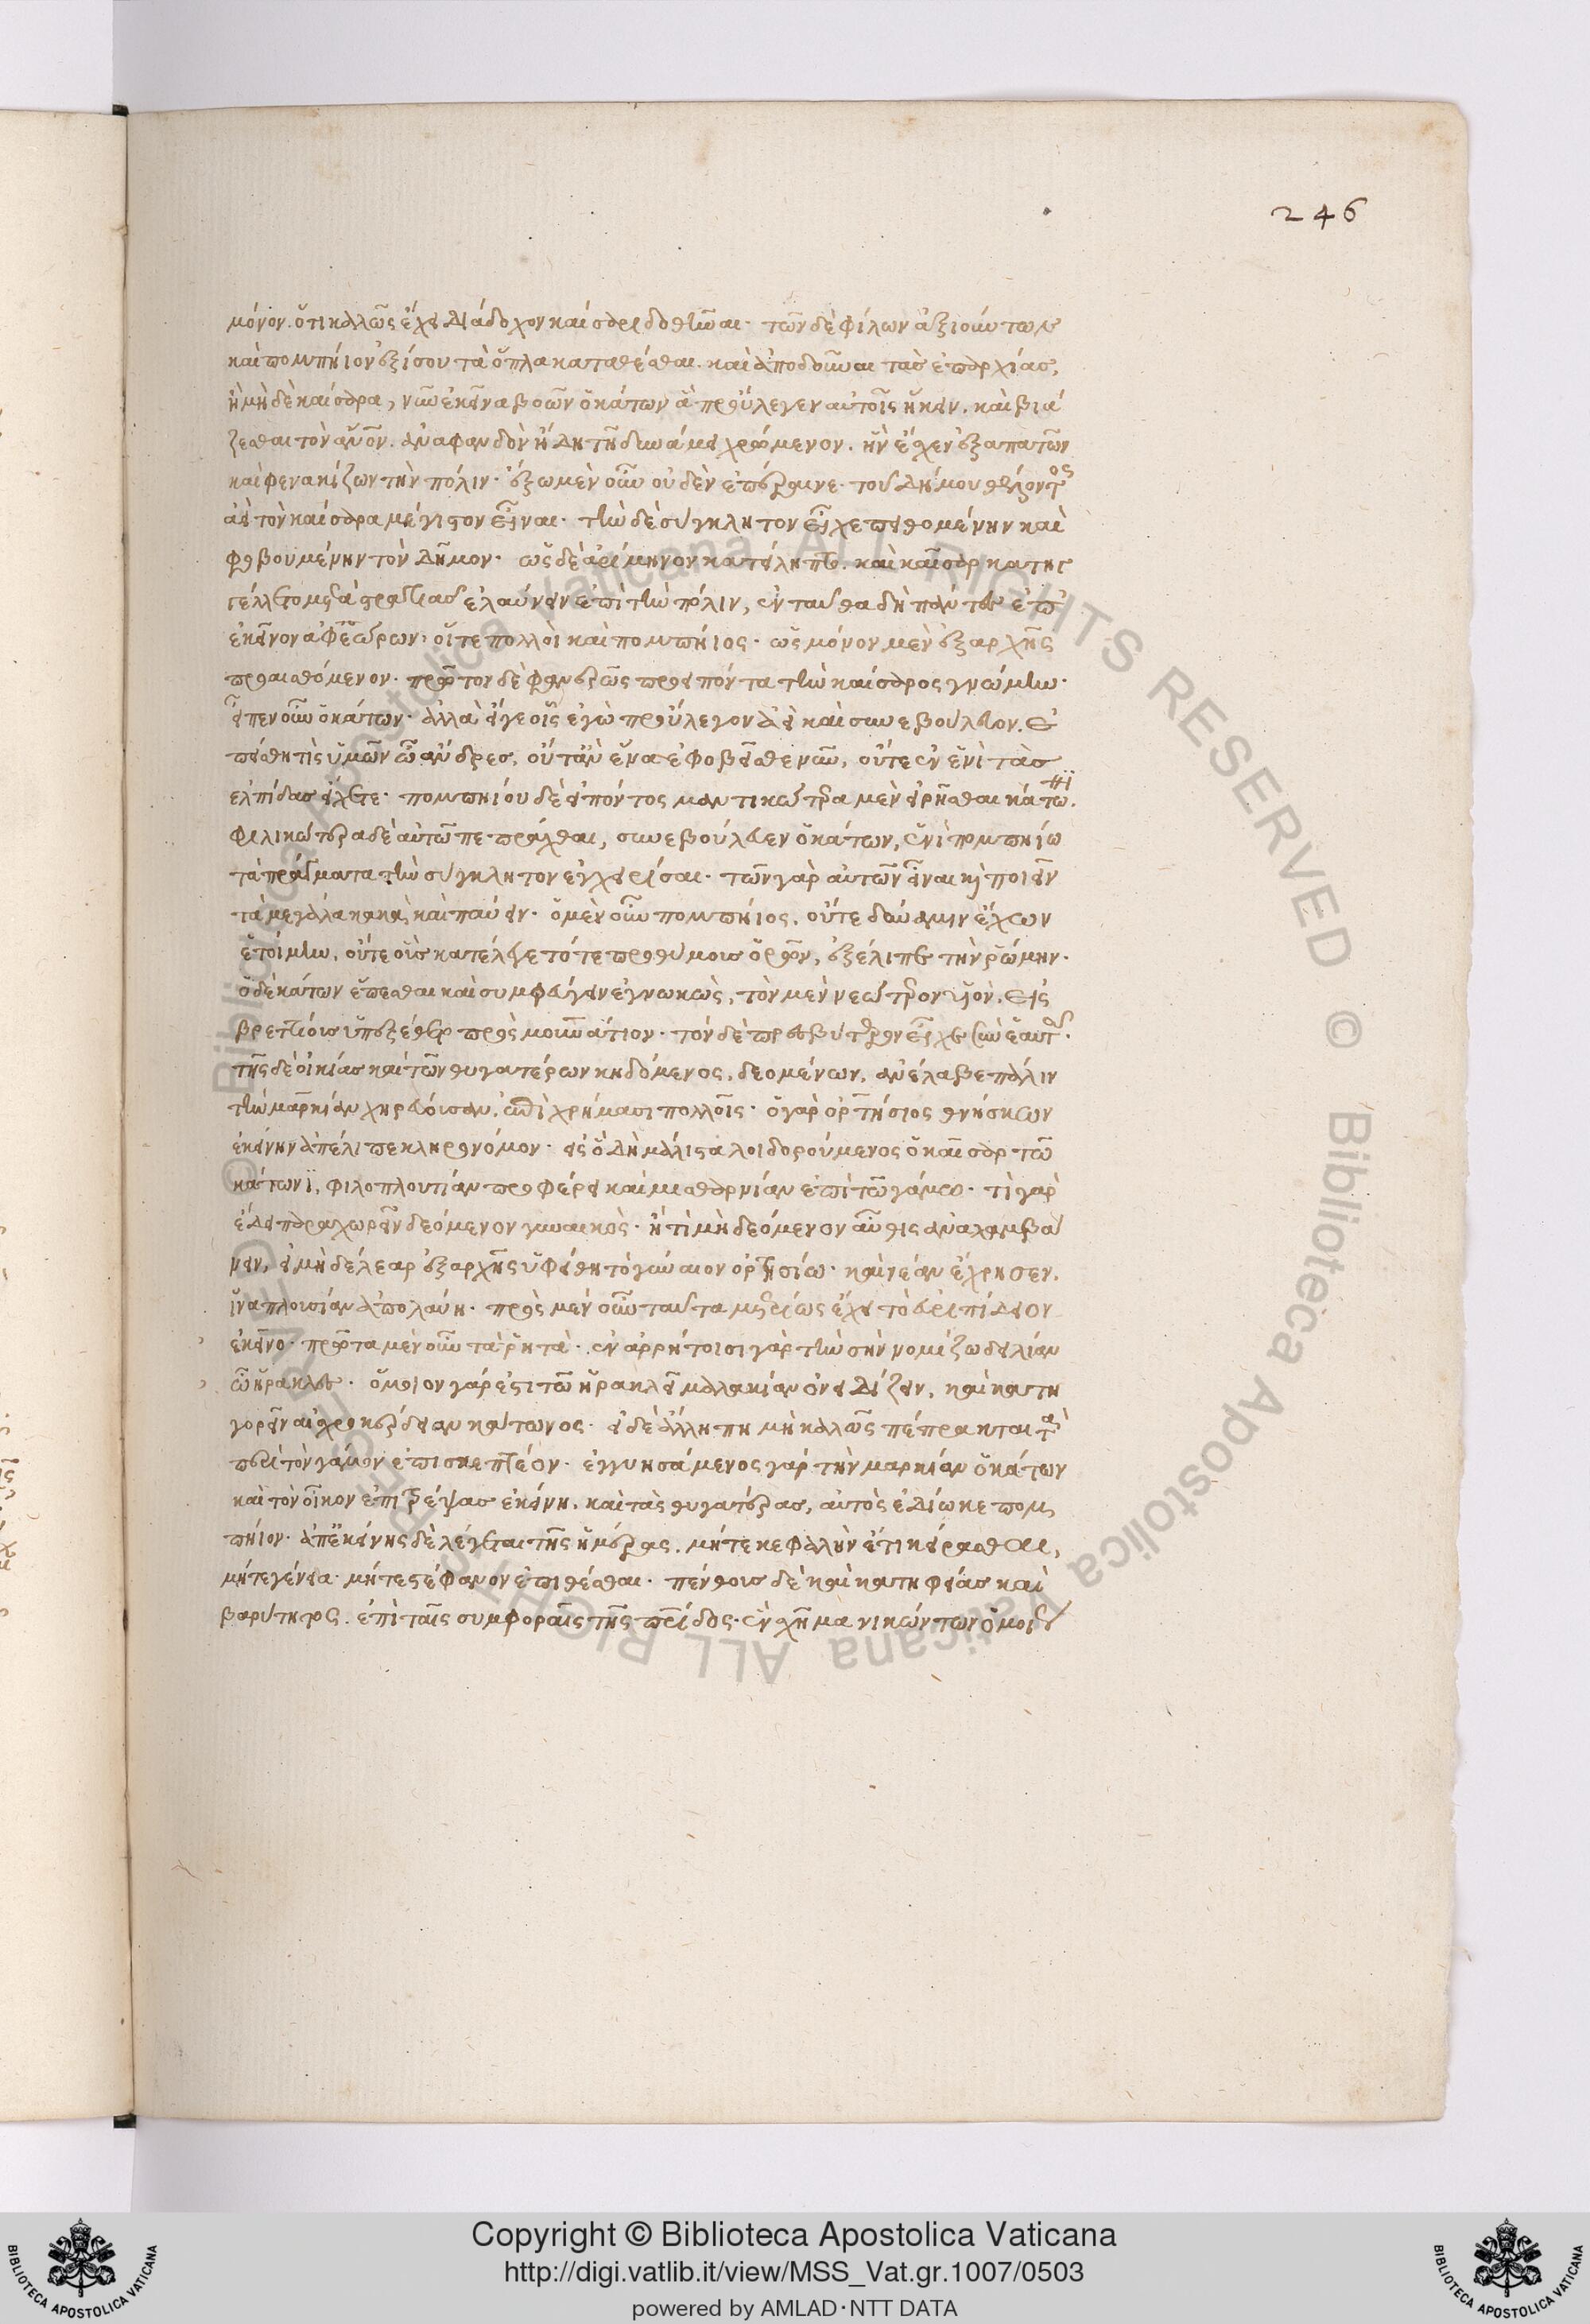 246
μόνον. ὅτι καλῶς ἔχει διάδοχον καίσαρι δοθῆναι. τῶν δὲ φίλων ἀξιούντων
καὶ πομπήϊον ἐξίσου τὰ ὅπλα καταθέσθαι. καὶ ἀποδοῦναι τὰς ἐπαρχίας,
ἢ μὴ δὲ καίσαρα, νῦν ἐκεῖνα βοῶν ὁ κάτων ἃ προὔλεγεν αὐτοῖς ἥκειν. καὶ βιά
ζεσθαι τὸν ἄνον. ἀναφανδὸν ἤδη τῇ δυνάμει χρώμενον. ἣν ἔσχεν ἐξαπατῶν
καὶ φενακίζων τὴν πόλιν. ἔξω μὲν οὖν οὐδὲν ἐπέραινε. τοῦ δήμου θέλοντος
ἀεὶ τὸν καίσαρα μέγιστον εἶναι. τὴν δὲ σύγκλητον εἶχε πειθομένην καὶ
φοβουμένην τὸν δῆμον. ὡς δὲ ἀρίμηνον κατείληπτο. καὶ καῖσαρ κατηγ
γέλλετο μετὰ στρατιᾶς ἐλαύνειν ἐπὶ τὴν πόλιν, ἐνταῦθα δὴ πάντες ἐπ'
ἐκεῖνον ἀφεώρων. οἵ τε πολλοὶ καὶ πομπήϊος. ὡς μόνον μὲν ἐξαρχῆς
προαισθόμενον. πρῶτον δὲ φανερῶς προειπόντα τὴν καίσαρος γνώμην.
εἶπεν οὖν ὁ κάτων. ἀλλὰ εἴγε οἷς ἐγὼ προὔλεγον ἀεὶ καὶ συνεβούλευον. ἐ
πείσθη τὶς ὑμῶν ὦ ἄνδρες, οὔτ' ἂν ἕνα ἐφοβεῖσθε νῦν, οὔτε ἐν ἑνὶ τὰς
ἐλπίδας εἴχετε. πομπηίου δὲ εἰπόντος μαντικώτερα μὲν εἰρῆσθαι κάτωνϊ.
φιλικώτερα δὲ αὐτῷ πεπράχθαι, συνεβούλευεν ὁ κάτων, ἑνὶ πομπηίω
τὰ πράγματα τὴν σύγκλητον ἐγχειρίσαι. τῶν γὰρ αὐτῶν εἶναι καὶ ποιεῖν
τὰ μεγάλα κακὰ, καὶ παύειν. ὁ μὲν οὖν πομπήϊος, οὔτε δύναμιν ἔχων
ἑτοίμην, οὔτε οὓς κατέλεγε τότε προθύμους ὁρῶν, ἐξέλιπε τὴν ῥώμην.
ὁ δὲ κάτων ἕπεσθαι καὶ συμφεύγειν ἐγνωκὼς, τὸν μὲν νεώτερον υἱὸν, εἰς
βρεττίους ὑπεξέθετο πρὸς μουνάτιον. τὸν δὲ πρεσβύτερον εἶχε σὺν ἑαυτῷ.
τῆς δὲ οἰκίας καὶ τῶν θυγατέρων κηδόμενος, δεομένων, ἀνέλαβε πάλιν
τὴν μαρκίαν χηρεύουσαν, ἐπὶ χρήμασι πολλοῖς. ὁ γὰρ ὁρτήσιος θνήσκων
ἐκείνην ἀπέλιπε κληρονόμον. εἰς ὃ δὴ μάλιστα λοιδορούμενος ὁ καῖσαρ τῶ
κάτωνϊ, φιλοπλουτίαν προφέρει καὶ μισθαρνίαν ἐπὶ τῶ γάμω. τὶ γὰρ
ἔδει παραχωρεῖν δεόμενον γυναικὸς. ἢ τὶ μὴ δεόμενον αὖθις ἀναλαμβά
νειν, εἰ μὴ δέλεαρ ἐξαρχῆς ὑφείθη τὸ γύναιον ὁρτησίω. καὶ νέαν ἔχρησεν.
ἵνα πλουσίαν ἀπολαύη. πρὸς μὲν οὖν ταῦτα μετρίως ἔχει τὸ εὐριπίδειον
ἐκεῖνο. πρῶτα μὲν οὖν τὰ ῥητὰ. ἐν ἀρρήτοισι γὰρ τὴν σὴν νομίζω δειλίαν
ὦ ἡράκλεις. ὅμοιον γάρ ἐστι τῶ ἡρακλεῖ μαλακίαν ὀνειδίζειν, καὶ κατη
γορεῖν αἰσχροκέρδειαν κάτωνος. εἰ δὲ ἄλλη πη μὴ καλῶς πέπρακται τὰ
περὶ τὸν γάμον ἐπισκεπτέον. ἐγγυησάμενος γὰρ τὴν μαρκίαν ὁ κάτων
καὶ τὸν οἶκον ἐπιτρέψας ἐκείνη, καὶ τὰς θυγατέρας, αὐτὸς ἐδίωκε πομ
πήϊον. ἀπ' ἐκείνης δὲ λέγεται τῆς ἡμέρας. μήτε κεφαλὴν ἔτι κείρασθαι,
μήτε γένεια. μήτε στέφανον ἐπιθέσθαι. πένθους δὲ καὶ κατηφείας καὶ
βαρύτητος. ἐπὶ ταῖς συμφοραῖς τῆς πατρίδος. ἓν σχῆμα νικώντων ὁμοίως
Copyright © Biblioteca Apostolica Vaticana
http://digi.vatlib.it/view/MSS_Vat.gr.1007/0503
powered by AMLAD·NTT DATA
BIBLIOTECA APOSTOLICA VATICANA
BIBLIOTECA APOSTOLICA VATICANA
© Biblioteca Apostolica Vaticana ALL RIGHTS RESERVED